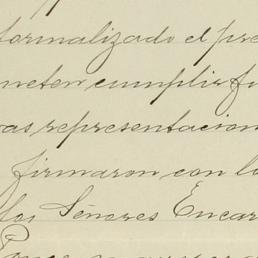 formalizado el pre
meten cumplir fi
as representacion
firmaron con lo
los Señores Encar